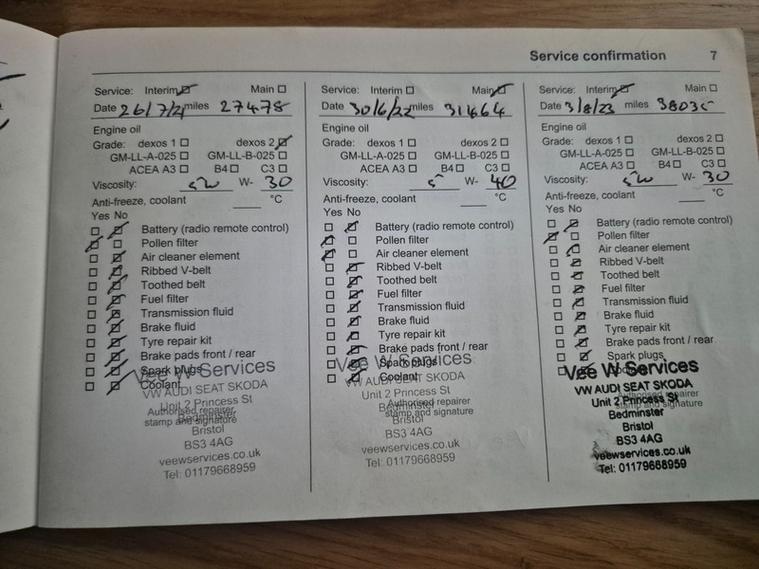 Service confirmation 7
Service: Interim Main
Date 26/7/21 miles 27478
Engine oil
Grade: dexos 1 dexos 2
GM-LL-A-025 GM-LL-B-025
ACEA A3 B4 C3
Viscosity: 5W W- 30
Anti-freeze, coolant °C
Yes No
Battery (radio remote control)
Pollen filter
Air cleaner element
Ribbed V-belt
Toothed belt
Fuel filter
Transmission fluid
Brake fluid
Tyre repair kit
Brake pads front / rear
Spark plugs
Coolant
Vee W Services
VW AUDI SEAT SKODA
Unit 2 Princess St
Authorised repairer
Bedminster
stamp and signature
Bristol
BS3 4AG
veewservices.co.uk
Tel: 01179668959
Service: Interim Main
Date 30/6/22 miles 31664
Engine oil
Grade: dexos 1 dexos 2
GM-LL-A-025 GM-LL-B-025
ACEA A3 B4 C3
Viscosity: 5 W- 40
Anti-freeze, coolant °C
Yes No
Battery (radio remote control)
Pollen filter
Air cleaner element
Ribbed V-belt
Toothed belt
Fuel filter
Transmission fluid
Brake fluid
Tyre repair kit
Brake pads front / rear
Spark plugs
Coolant
Vee W Services
VW AUDI SEAT SKODA
Unit 2 Princess St
Authorised repairer
Bedminster
stamp and signature
Bristol
BS3 4AG
veewservices.co.uk
Tel: 01179668959
Service: Interim Main
Date 3/8/23 miles
Engine oil
Grade: dexos 1 dexos 2
GM-LL-A-025 GM-LL-B-025
ACEA A3 B4 C3
Viscosity: 5W W- 30
Anti-freeze, coolant °C
Yes No
Battery (radio remote control)
Pollen filter
Air cleaner element
Ribbed V-belt
Toothed belt
Fuel filter
Transmission fluid
Brake fluid
Tyre repair kit
Brake pads front / rear
Spark plugs
Vee W Services
VW AUDI SEAT SKODA
Unit 2 Princess St
Authorised repairer
stamp and signature
Bedminster
Bristol
BS3 4AG
veewservices.co.uk
Tel: 01179668959